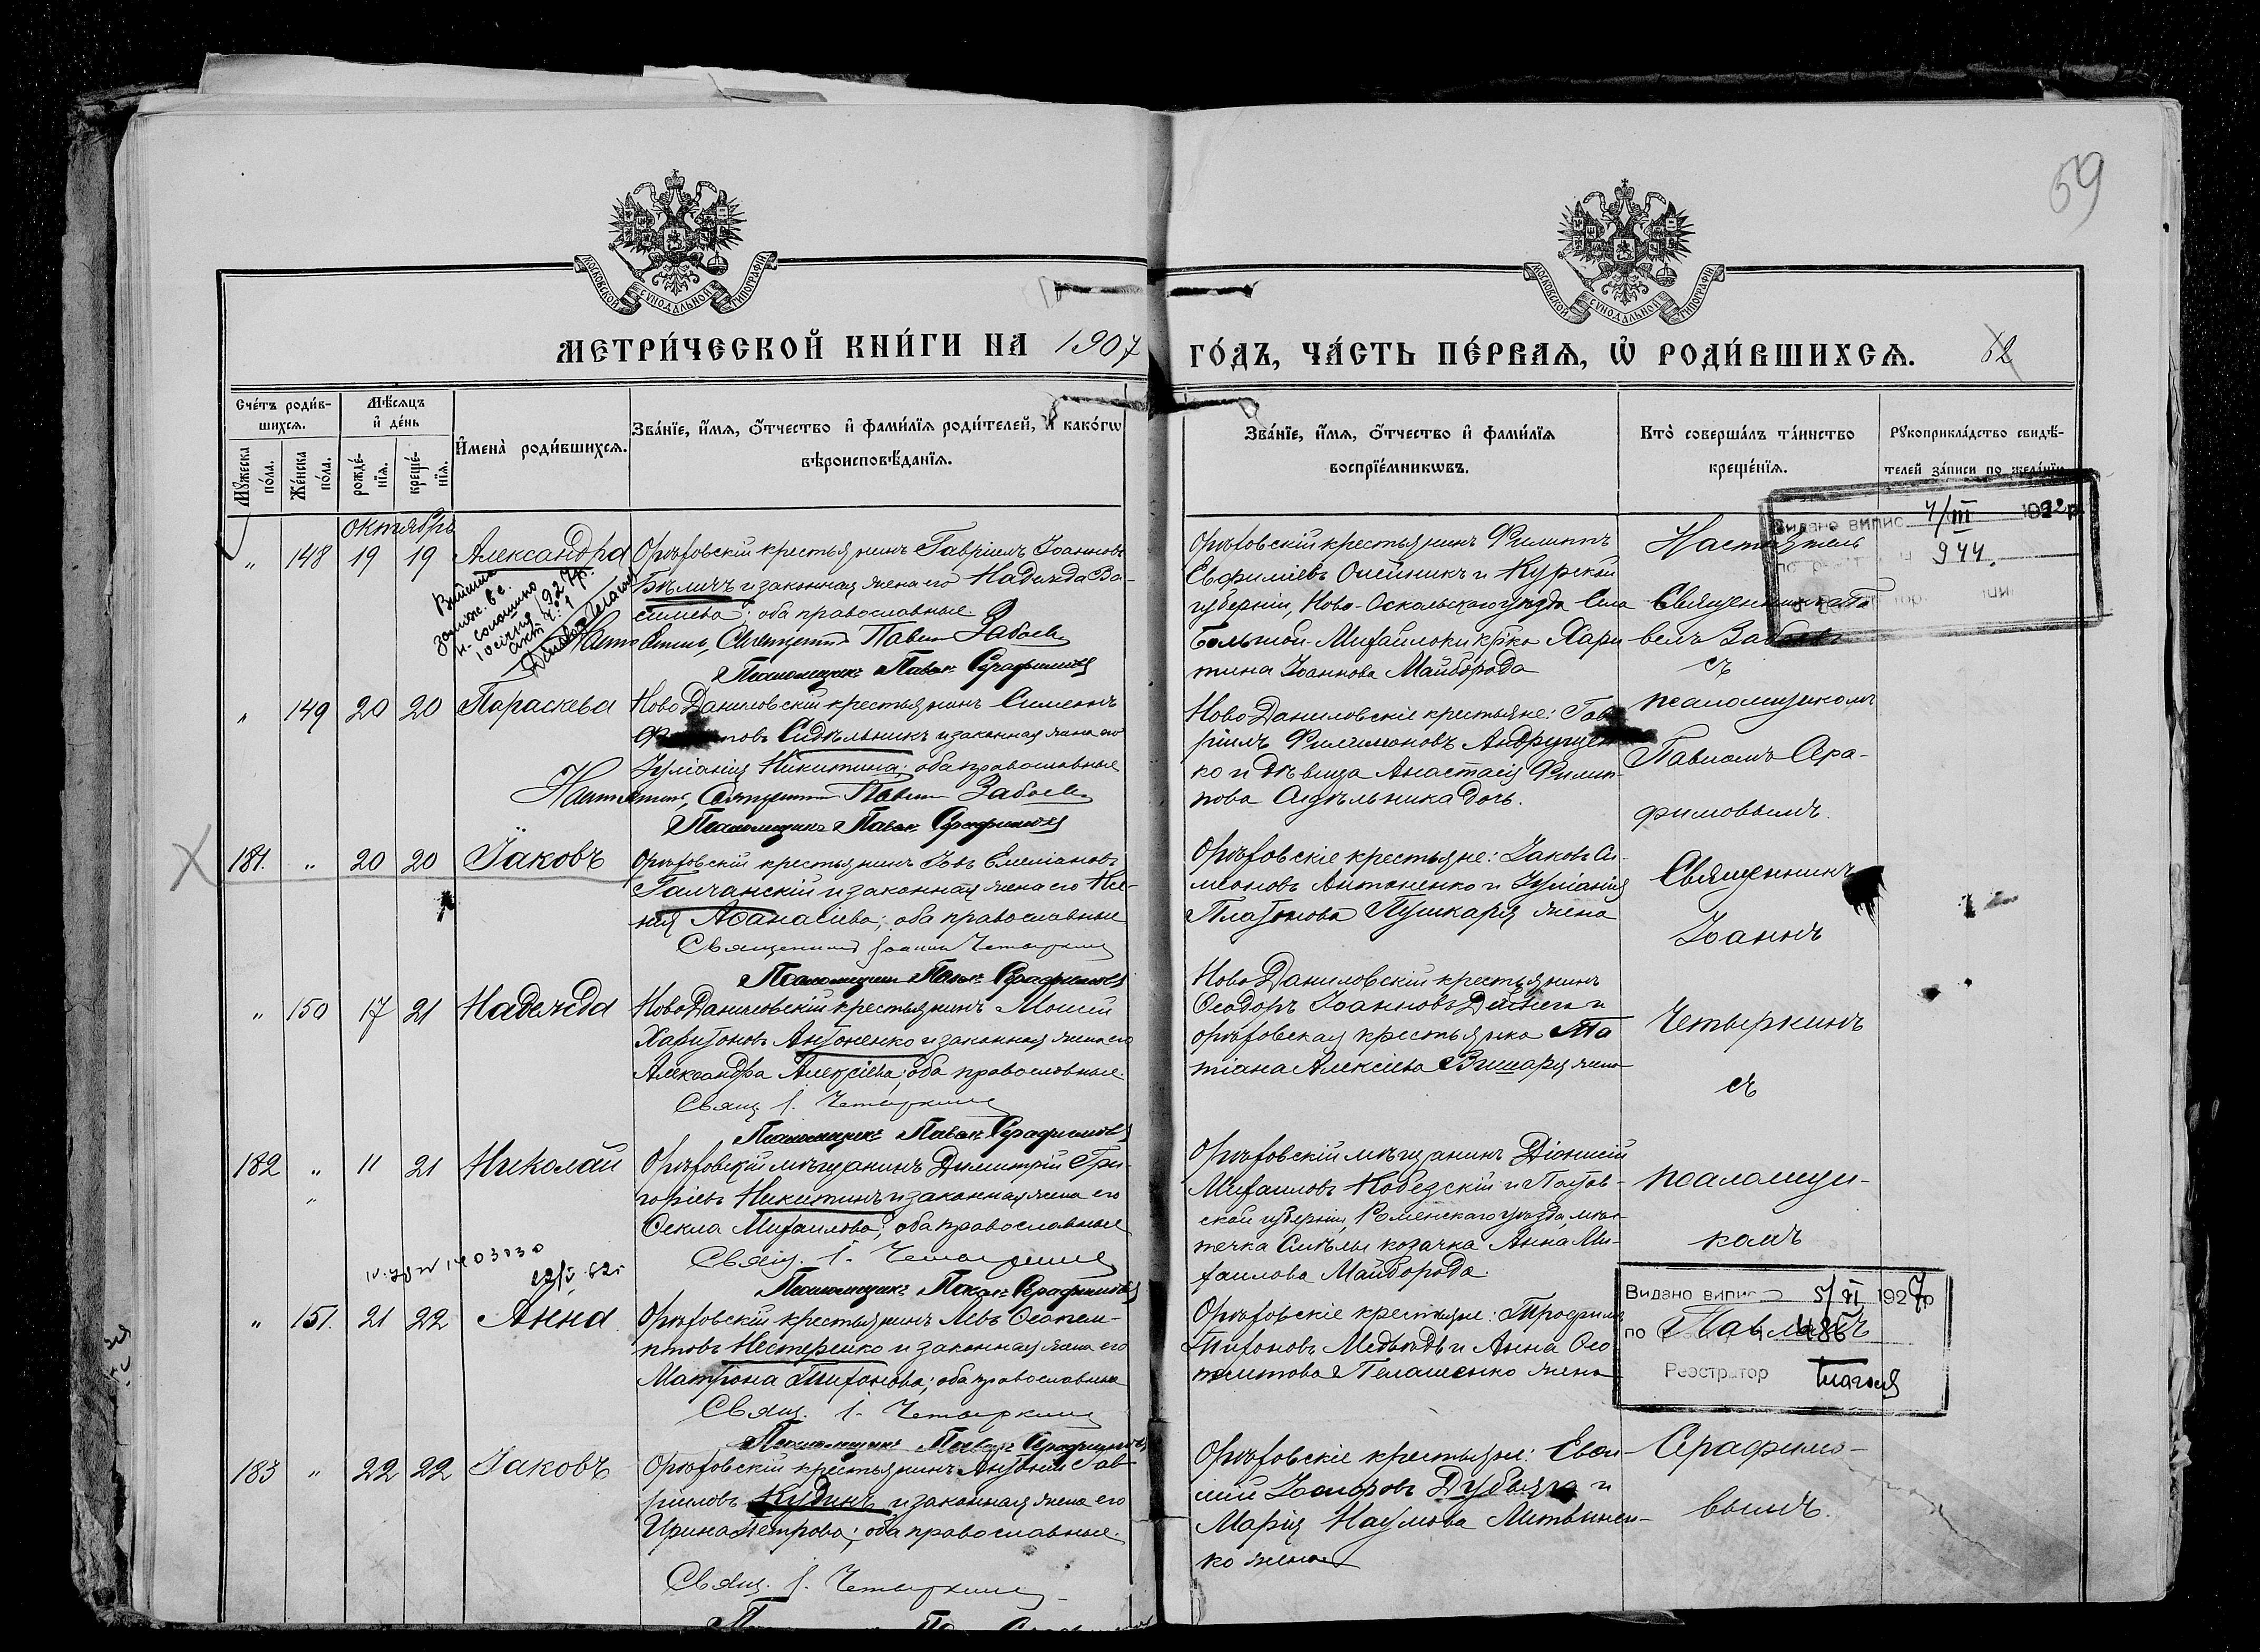 59
МОСКОВСКОЙ СѴНОДАЛЬНОЙ ТИПОГРАФІИ
МОСКОВСКОЙ СѴНОДАЛЬНОЙ ТИПОГРАФІИ
МЕТРИ́ЧЕСКОЙ КНИ́ГИ НА 1907
ГО́ДЪ, ЧА́СТЬ ПЕ́РВАѦ, Ѡ҆ РОДИ́ВШИХСѦ.
Сче́тъ роди́в-
шихсѧ.
Мѣ́сѧцъ
и҆ де́нь
Мꙋжеска по́ла.
Же́нска по́ла.
рожде́-
нїѧ.
креще́-
нїѧ.
И҆мена̀ роди́вшихсѧ.
Зва́нїе, и҆́мѧ, ѻ҆́тчество и҆ фами́лїѧ роди́телей, и҆ како́гѡ
вѣроисповѣ́данїѧ.
Зва́нїе, и҆́мѧ, ѻ҆́тчество и҆ фами́лїѧ
воспрїе́мникѡвъ.
Кто̀ соверша́лъ та́инство
креще́нїѧ.
Рꙋкоприкла́дство свидѣ́-
телей за́писи по жела́нїю
октябрь
" 148 19 19 Александра
Орѣховскій крестьянинъ Гавріилъ Іоанновъ
Бѣличъ и законная жена его Надежда Ва-
силева; оба православные.
Священникъ Павелъ Забаевъ
Псаломщикъ Павелъ Серафимовъ
Орѣховскій крестьянинъ Филиппъ
Евфиміевъ Олейникъ и Курской
губерніи, Ново-Оскольскаго уѣзда села
Большой-Михайловки кр-ка Хари
тина Іоаннова Майборода
Настоятель
Священникъ Па
велъ Забаевъ
съ
псаломщикомъ
Павломъ Сера-
фимовымъ.
Видано випис 4/III
944.
" 149 20 20 Параскева
НовоДаниловскій крестьянинъ Симеонъ
Сидѣльникъ и законная жена его
Іуліанія Никитина; оба православные
Священникъ Павелъ Забаевъ
Псаломщикъ Павелъ Серафимовъ
НовоДаниловскіе крестьяне: Гав
ріилъ Филимоновъ Андрущен
ко и дѣвица Анастасія Филип-
пова Сидѣльника дочь.
181. " 20 20 Іаковъ
Орѣховскій крестьянинъ Іовъ Емеліановъ
Галчанскій и законная жена его Ксе-
нія Аѳанасіева; оба православные
Священникъ Іоаннъ Четыркинъ
Псаломщикъ Павелъ Серафимовъ
Орѣховскіе крестьяне: Іаковъ Си-
меоновъ Антоненко и Іуліанія
Платонова Пушкаря жена
Священникъ
Іоаннъ
Четыркинъ
съ
псаломщи-
комъ
" 150 17 21 Надежда
НовоДаниловскій крестьянинъ Моисей
Харитоновъ Антоненко и законная жена его
Александра Алексіева; оба православные.
Свящ. І. Четыркинъ
Псаломщикъ Павелъ Серафимовъ
НовоДаниловскій крестьянинъ
Ѳеодоръ Іоанновъ Дейнега и
орѣховская крестьянка Та
тіана Алексіева жена
182 " 11 21 Николай
Орѣховскій мѣщанинъ Димитрій Гри-
горіевъ Никитинъ и законная жена его
Ѳекла Михаилова; оба православные
Свящ. І. Четыркинъ
Псаломщикъ Павелъ Серафимовъ
Орѣховскій мѣщанинъ Діонисій
Михаиловъ Кобезскій и Полтав-
ской губерніи, Роменскаго уѣзда, мѣс-
течка Смѣлы козачка Анна Ми-
хаилова Майборода.
" 151. 21 22 Анна
Орѣховскій крестьянинъ Левъ Ѳеопем-
птовъ Нестеренко и законная жена его
Матрона Тихонова; оба православные
Свящ. І. Четыркинъ
Псаломщикъ Павелъ Серафимовъ
Орѣховскіе крестьяне: Трофимъ
Тихоновъ Медвѣдь и Анна Ѳео
пемптова Пелашенко жена
Видано випис 5/VI 1927р
по 486
Павломъ
Реєстратор
183 " 22 22 Іаковъ
Орѣховскій крестьянинъ Антоній Гав-
ріиловъ Кудинъ и законная жена его
Ирина Петрова; оба православные.
Свящ. І. Четыркинъ
Орѣховскіе крестьяне: Евѳи-
мій Дубяга и
Марія Наумова Литвинен-
ко жена
Серафимо-
вымъ.